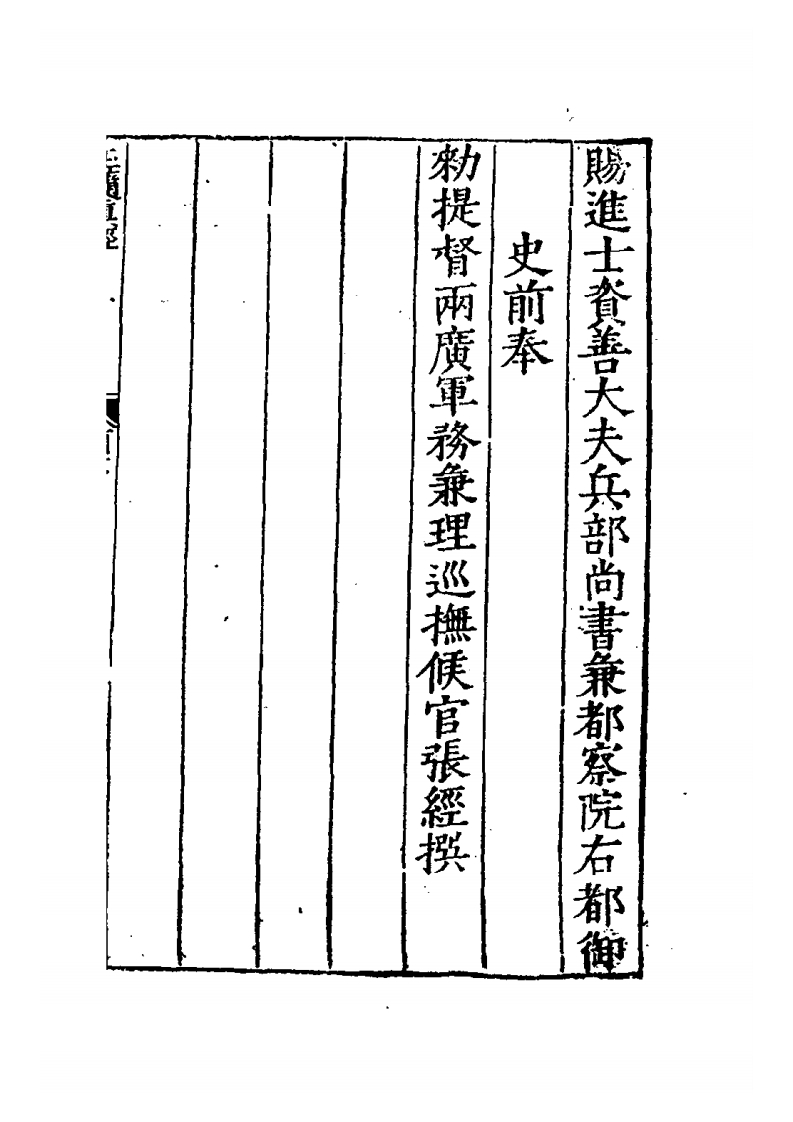 賜進士資善大夫兵部尚書兼都察院右都御
史前奉
勑提督兩廣軍務兼理巡撫候官張經撰